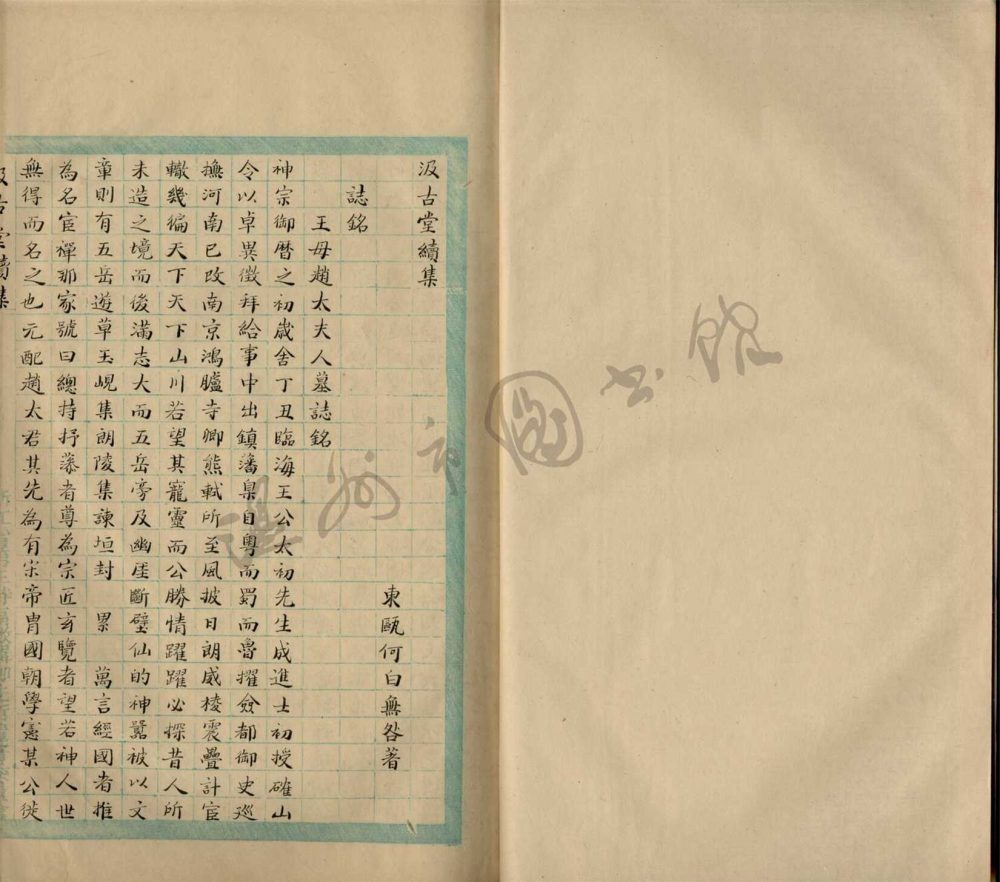 汲古堂續集
東甌何白無咎著
誌銘
王母趙太夫人墓誌銘
神宗御曆之初歲舍丁丑臨海王公太初先生成進士初授確山
令以卓異徵拜給事中出鎮藩臬自粵而蜀而魯擢僉都御史廵
撫河南已改南京鴻臚寺卿熊軾所至風披日朗威棱震疊計宦
轍幾徧天下天下山川若望其寵靈而公勝情躍躍必探昔人所
未造之境而後滿志大而五岳旁及幽崖斷壁仙的神嚚被以文
章則有五岳遊草玉峴集朗陵集諫垣封 累 萬言經國者推
為名宦禪那家號曰總持抒藻者尊為宗匠玄覽者望若神人世
無得而名之也元配趙太君其先為有宋帝胄國朝學憲某公徙
汲古堂續集
溫州市圖書館